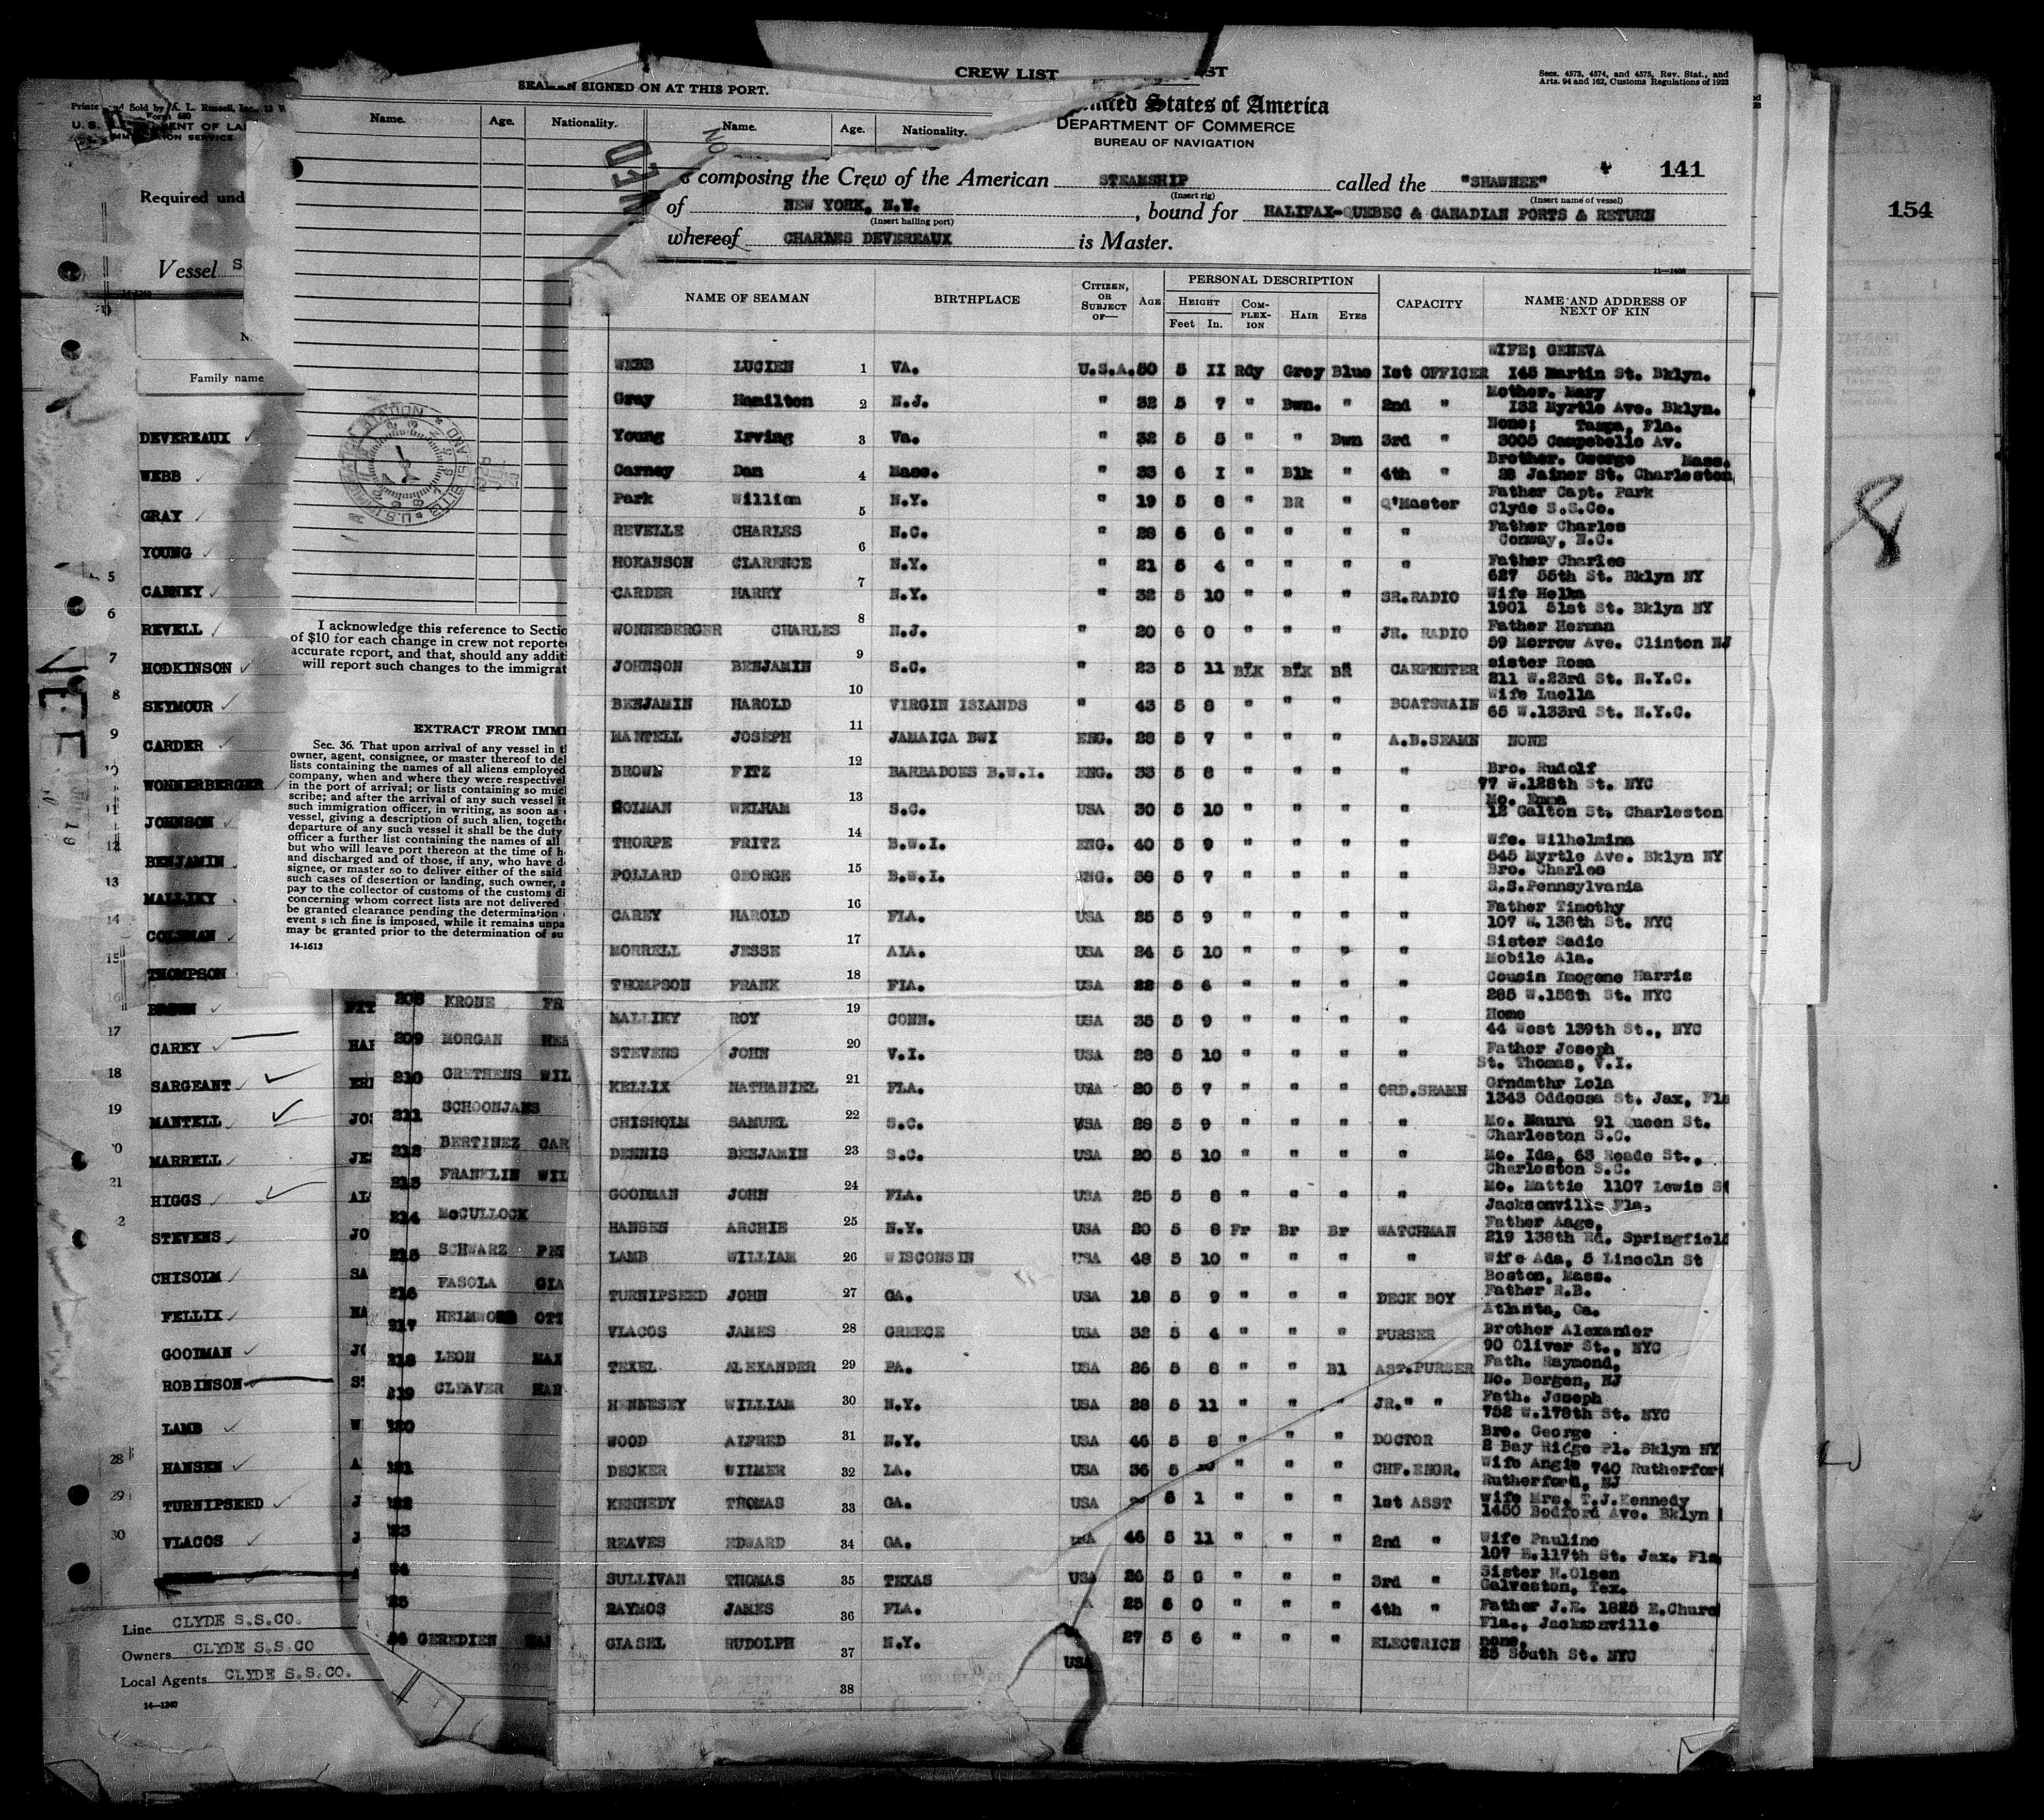 CREW LIST
SEAMAN SIGNED ON AT THIS PORT.
Name. Age. Nationality. Name. Age. Nationality.
Secs. 4573, 4574, and 4575, Rev. Stat., and
Arts. 94 and 162, Customs Regulations of 1923
United States of America
DEPARTMENT OF COMMERCE
BUREAU OF NAVIGATION
141
composing the Crew of the American STEAMSHIP called the "SHAWNEE"
(Insert rig) (Insert name of vessel)
of NEW YORK, N.Y. , bound for HALIFAX-QUEBEC & CANADIAN PORTS & RETURN
(Insert hailing port)
whereof CHARLES DEVEREAUX is Master.
11—1408
NAME OF SEAMAN BIRTHPLACE CITIZEN, OR SUBJECT OF— AGE PERSONAL DESCRIPTION CAPACITY NAME AND ADDRESS OF NEXT OF KIN
HEIGHT COM-PLEX-ION HAIR EYES
Feet In.
WIFE; GENEVA
WEBB LUCIEN 1 VA. U.S.A. 50 5 II Rdy Grey Blue 1st OFFICER 145 Martin St. Bklyn.
Mother. Mary
Gray Hamilton 2 N.J. " 32 5 7 " Bwn. " 2nd " 132 Myrtle Ave. Bklyn.
None; Tampa, Fla.
Young Irving 3 Va. " 32 5 5 " " Bwn 3rd " 3005 Campobello Av.
Brother. George Mass.
Carney Dan 4 Mass. " 33 6 I " Blk " 4th " 28 Jainer St. Charleston
Park William 5 N.Y. " 19 5 8 " BR " Q'Master Father Capt. Park
Clyde S.S.Co.
REVELLE CHARLES 6 N.C. " 28 6 6 " " " " Father Charles
Conway, N.C.
HOKANSON CLARENCE 7 N.Y. " 21 5 4 " " " " Father Charles
627 55th St. Bklyn NY
CARDER HARRY 8 N.Y. " 32 5 10 " " " SR.RADIO Wife Helka
1901 51st St. Bklyn NY
WONNEBERGER CHARLES 9 N.J. " 20 6 0 " " " JR. RADIO Father Herman
59 Morrow Ave. Clinton NJ
JOHNSON BENJAMIN 10 S.C. " 23 5 11 BLK BLK BR CARPENTER sister Rosa
211 W.23rd St. N.Y.C.
BENJAMIN HAROLD 11 VIRGIN ISLANDS " 43 5 8 " " " BOATSWAIN Wife Luella
65 W.133rd St. N.Y.C.
MANTELL JOSEPH 12 JAMAICA BWI ENG. 28 5 7 " " " A.B.SEAMN NONE
BROWN FITZ 13 BARBADOES B.W.I. ENG. 33 5 8 " " " " Bro. Rudolf
77 W.128th St. NYC
HOLMAN WELHAM 14 S.C. USA 30 5 10 " " " " Mo. Emma
12 Galton St. Charleston
THORPE FRITZ 15 B.W.I. ENG. 40 5 9 " " " " Wfe. Wilhelmina
545 Myrtle Ave. Bklyn NY
POLLARD GEORGE 16 B.W.I. ENG. 38 5 7 " " " " Bro. Charles
S.S.Pennsylvania
CAREY HAROLD 17 FLA. USA 25 5 9 " " " " Father Timothy
107 W.138th St. NYC
MORRELL JESSE 18 ALA. USA 24 5 10 " " " " Sister Sadie
Mobile Ala.
THOMPSON FRANK 19 FLA. USA 22 5 6 " " " " Cousin Imogene Harris
285 W.158th St. NYC
MALLIKY ROY 20 CONN. USA 35 5 9 " " " " Home
44 West 139th St., NYC
STEVENS JOHN 21 V.I. USA 28 5 10 " " " " Father Joseph
St. Thomas, V.I.
KELLIX NATHANIEL 22 FLA. USA 20 5 7 " " " ORD.SEAMN Grndmthr Lola
1343 Oddessa St. Jax, Fla
CHISHOLM SAMUEL 23 S.C. USA 28 5 9 " " " " Mo. Maura 91 Queen St.
Charleston S.C.
DENNIS BENJAMIN 24 S.C. USA 20 5 10 " " " " Mo. Ida, 63 Reade St.,
Charleston S.C.
GOODMAN JOHN 25 FLA. USA 25 5 8 " " " " Mo. Mattie 1107 Lewis St
Jacksonville Fla.
HANSEN ARCHIE 26 N.Y. USA 20 5 8 Fr Br Br WATCHMAN Father Aage,
219 138th Rd. Springfield
LAMB WILLIAM 27 WISCONSIN USA 48 5 10 " " " " Wife Ada, 5 Lincoln St
Boston, Mass.
TURNIPSEED JOHN 28 GA. USA 18 5 9 " " " DECK BOY Father R.B.
Atlanta, Ga.
VLACOS JAMES 29 GREECE USA 32 5 4 " " " PURSER Brother Alexander
90 Oliver St., NYC
TEXEL ALEXANDER 30 PA. USA 26 5 8 " " Bl AST.PURSER Fath. Raymond,
No. Bergen, NJ
HENNESEY WILLIAM 31 N.Y. USA 28 5 11 " " " JR." " Fath. Joseph
752 W.178th St. NYC
WOOD ALFRED 32 N.Y. USA 46 5 8 " " " DOCTOR Bro. George
2 Bay Ridge Pl. Bklyn NY
DECKER WILMER 33 LA. USA 36 5 " " " CHF.ENGR. Wife Angie 740 Rutherfor
Rutherford, NJ
KENNEDY THOMAS 34 GA. USA 6 1 " " " 1st ASST Wife Mrs. T.J.Kennedy
1450 Bedford Ave. Bklyn
REAVES EDWARD 35 GA. USA 46 5 11 " " " 2nd " Wife Pauline
107 E.117th St. Jax. Fla
SULLIVAN THOMAS 36 TEXAS USA 26 5 8 " " " 3rd " Sister H.Olsen
Galveston, Tex.
RAYMOS JAMES 37 FLA. 25 5 0 " " " 4th " Father J.E. 1825 E.Churc
Fla., Jacksonville
GIASEL RUDOLPH 38 N.Y. USA 27 5 6 " " " ELECTRICN none,
25 South St. NYC
Printed and Sold by A. L. Russell, Inc.,
Form 680
Required und
Vessel S
14-1240
Family name
DEVEREAUX
WEBB
GRAY
YOUNG
5 CARNEY
6 REVELL
7 HODKINSON
8 SEYMOUR
9 CARDER
10 WONNERBERGER
11 JOHNSON
12 BENJAMIN
13 MALLIKY
14 COLEMAN
15 THOMPSON
16 BROWN
17 CAREY
18 SARGEANT
19 MANTELL
20 MARRELL
21 HIGGS
STEVENS
CHISOLM
FELLIX
GOODMAN
ROBINSON
LAMB
28 HANSEN
29 TURNIPSEED
30 VLACOS
Line CLYDE S.S.CO.
Owners CLYDE S.S.CO
Local Agents CLYDE S.S.CO.
14—1240
I acknowledge this reference to Sectio
of $10 for each change in crew not reporte
accurate report, and that, should any additi
will report such changes to the immigrat
EXTRACT FROM IMMI
Sec. 36. That upon arrival of any vessel in t
owner, agent, consignee, or master thereof to del
lists containing the names of all aliens employed
company, when and where they were respectivel
in the port of arrival; or lists containing so muc
scribe; and after the arrival of any such vessel it
such immigration officer, in writing, as soon as
vessel, giving a description of such alien, togethe
departure of any such vessel it shall be the duty
officer a further list containing the names of all
but who will leave port thereon at the time of h
and discharged and of those, if any, who have d
signee, or master so to deliver either of the said
such cases of desertion or landing, such owner,
pay to the collector of customs of the customs di
concerning whom correct lists are not delivered
be granted clearance pending the determination
event such fine is imposed, while it remains unpa
may be granted prior to the determination of su
14-1613
208 KRONE FR
209 MORGAN
210 GRETHENS WIL
211 SCHOONJANS
212 BERTINEZ CAR
213 FRANKLIN WIL
214 McCULLOCK
215 SCHWARZ
216 FASOLA GIA
217 OTT
218 LEON MAX
219 CLEAVER HAR
GEREDIEN
154
8